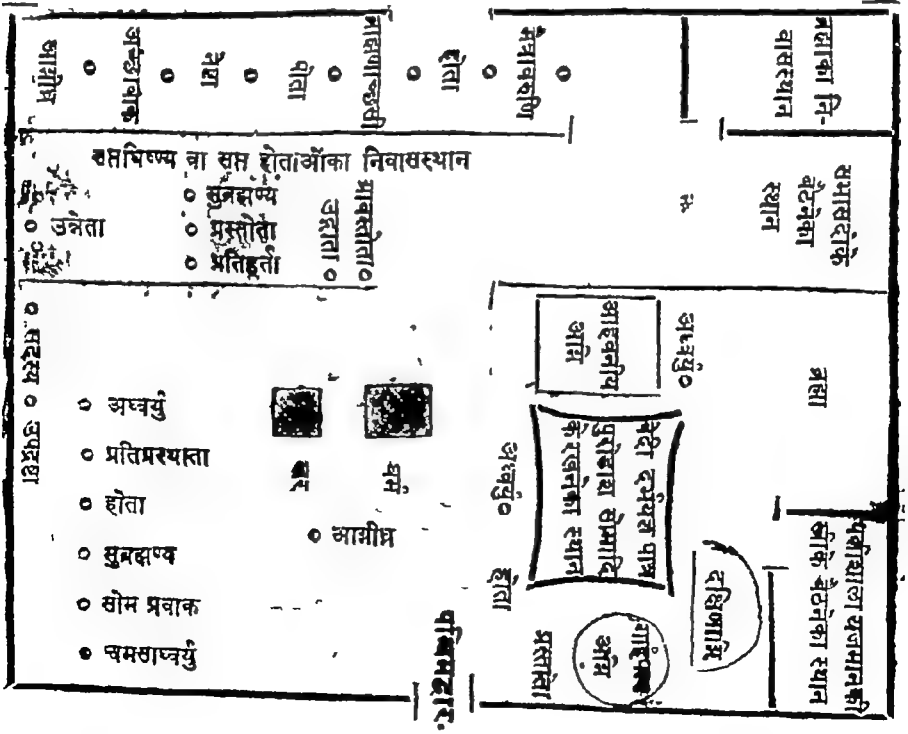 आग्नीध्र
अच्छावाक्
नेष्टा
पोता
ब्राह्मणाच्छंसी
होता
मैत्रावरुणि
ब्रह्माका नि-
वासस्थान
सप्तधिष्ण्य वा सप्त होताओंका निवासस्थान
सुब्रह्मण्य
प्रस्तोता
प्रतिहर्ता
उन्नेता
उद्गाता
ग्रावस्तोता
सभासदोंके
बैठनेका
स्थान
सदस्य
उपद्रष्टा
अध्वर्यु
प्रतिप्रस्थाता
होता
सुब्रह्मण्य
सोम प्रवाक
चमसाध्वर्यु
खर
घर्म
आग्नीध्र
आहवनीय
अग्नि
अध्वर्यु
ब्रह्मा
वेदी दर्भयज्ञ पात्र
पुरोडाश सोमादि
के रखनेका स्थान
अध्वर्यु
होता
प्रशास्ता
गार्हपत्य
अग्नि
दक्षिणाग्नि
पत्नीशाला यजमानकी
स्त्रीके बैठनेका स्थान
पश्चिमद्वार.